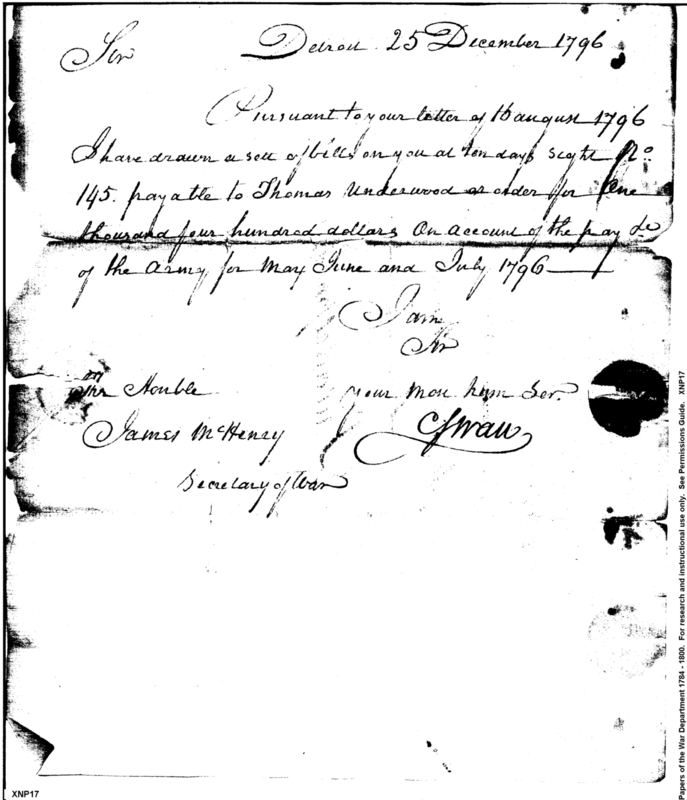 Sir Detroit 25 December 1796
Pursuant to your letter of 16 august 1796
I have drawn a sett of bills on you at ten days sight No.
145. payable to Thomas Underwood or order for One
thousand four hundred dollars On account of the pay &c
of the Army for May June and July 1796
I am
Sir
The Honble your mos hum Ser.
James McHenry CSwan
Secretary of War
XNP17
Papers of the War Department 1784 - 1800. For research and instructional use only. See Permissions Guide. XNP17